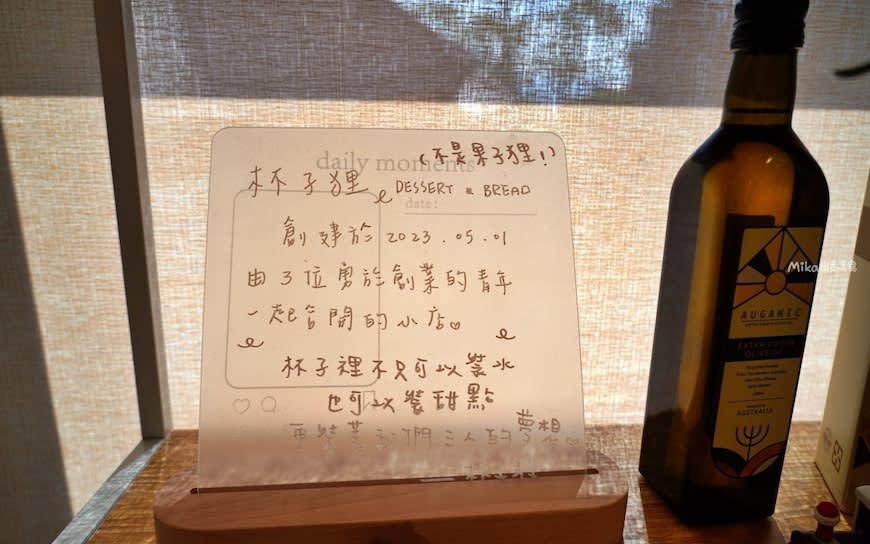 (不是果子狸!)
daily moments
杯子狸 DESSERT & BREAD
date:
創建於 2023.05.01
由3位勇於創業的青年
一起合開的小店♡
杯子裡不只可以裝水
也可以裝甜點
更裝著我們三人的夢想♡
AUGANIC
EXTRA VIRGIN OLIVE OIL
EXTRA VIRGIN
OLIVE OIL
AUSTRALIA